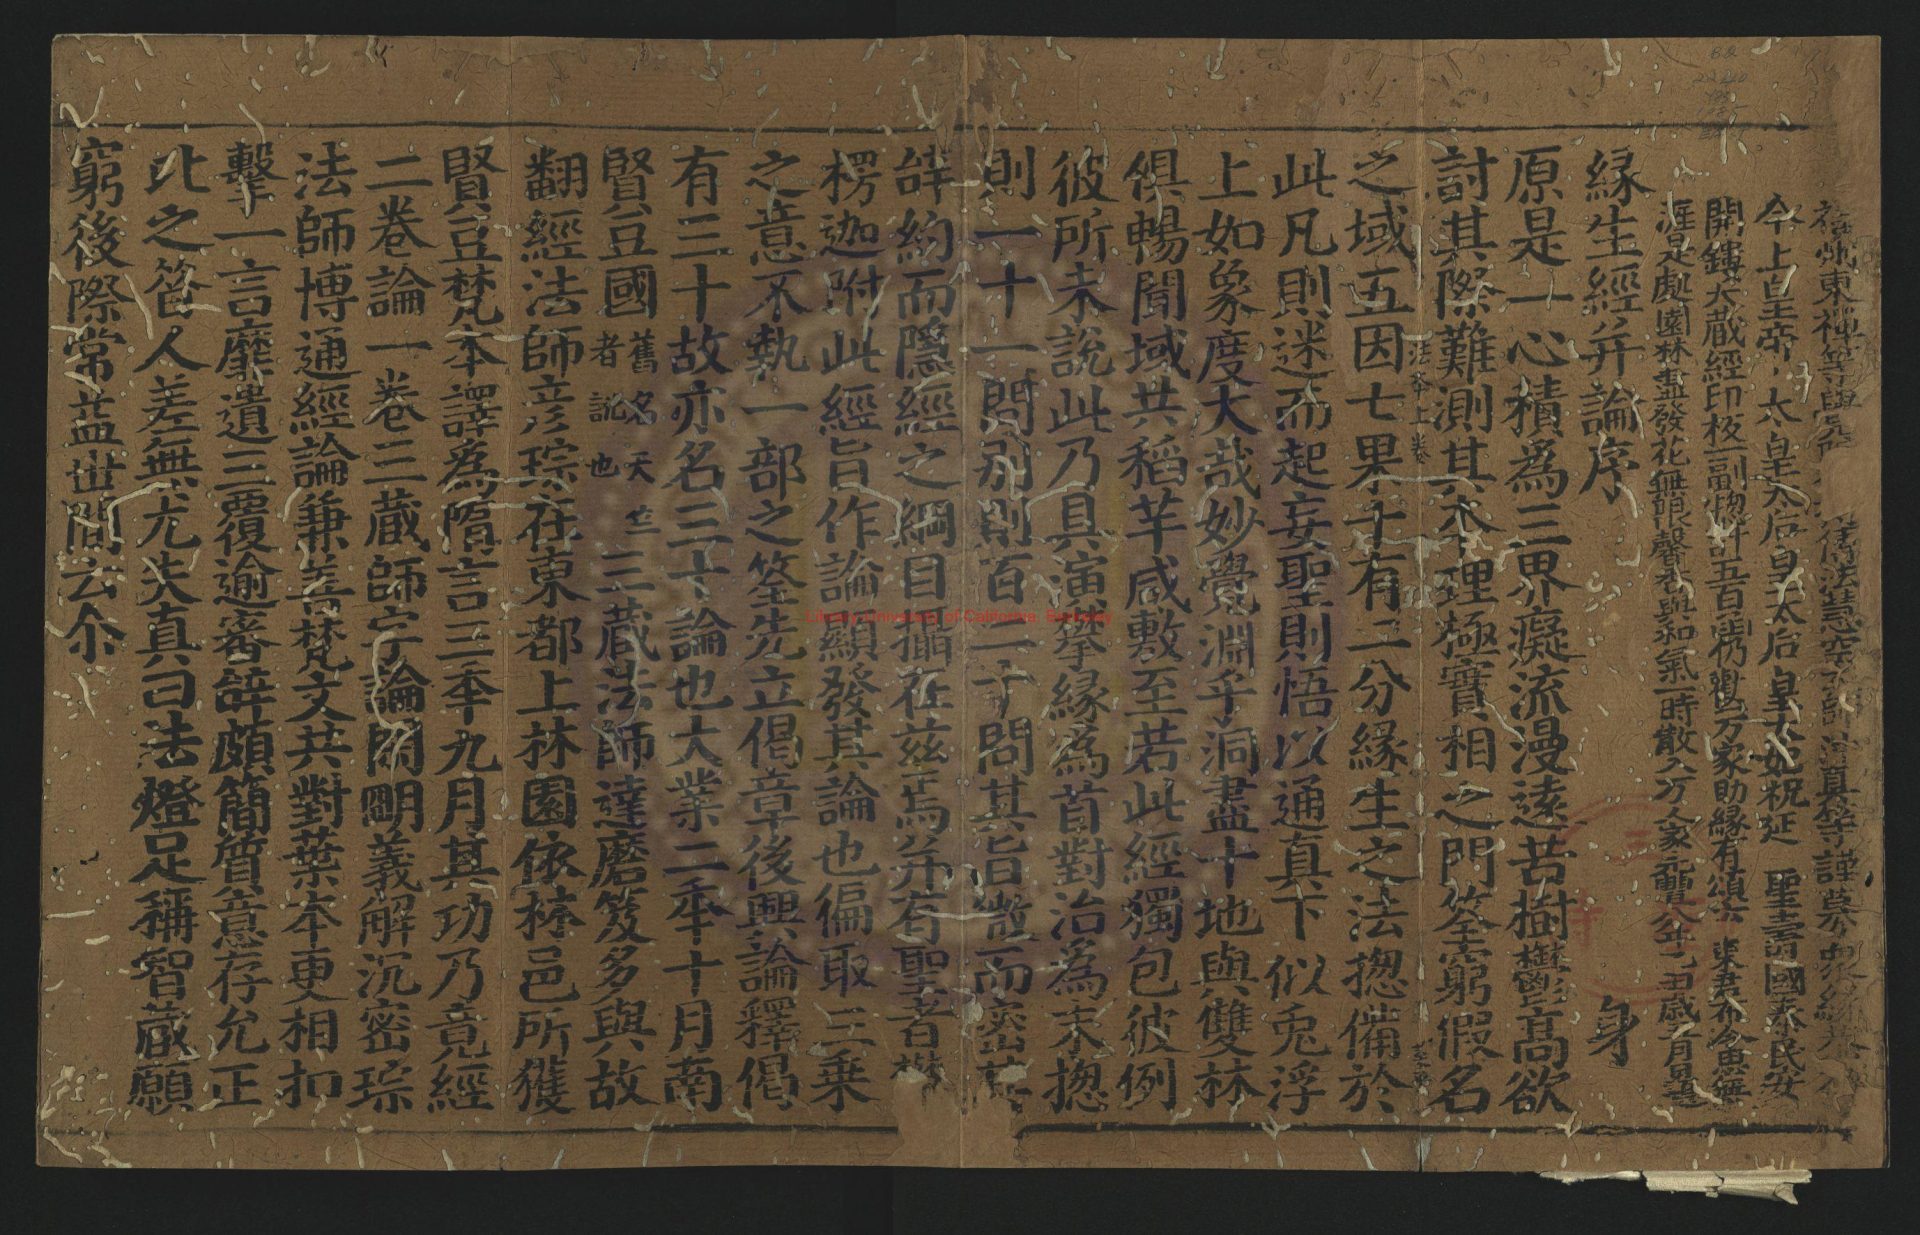 福州東禪等覺院傳法慧空大師沖真等謹募眾緣恭
今上皇帝太皇太后皇太后皇太妃祝延 聖壽國泰民安
開鏤大藏經印板一副揔計五百函仍勸万家助緣有頌云 東君布令思無
涯是處園林盡發花無限馨香與和氣一時散入万人家元豐八年乙丑歲三月日謹題
緣生經并論序 身
原是一心積為三界癡流漫遠苦樹鬱高欲
討其際難測其本理極實相之門筌窮假名
之域五因七果十有二分緣生之法揔備於
此凡則迷而起妄聖則悟以通真下似兔浮
上如象度大哉妙覺淵乎洞盡十地與雙林
俱暢聞域共稻芉咸敷至若此經獨包彼例
彼所未說此乃具演攀緣為首對治為末揔
則一十一問別則百二十問其旨微而密其
辭約而隱經之綱目攝在茲焉并有聖者欝
楞迦附此經旨作論顯發其論也偏取三乘
之意不執一部之筌先立偈章後興論釋偈
有三十故亦名三十論也大業二年十月南
賢豆國舊名天竺者訛也三藏法師達磨笈多與故
翻經法師彥琮在東都上林園依林邑所獲
賢豆梵本譯為隋言三年九月其功乃竟經
二卷論一卷三藏師字論閑明義解沉密琮
法師博通經論兼善梵文共對葉本更相扣
擊一言靡遺三覆逾審辭頗簡質意存允正
比之昔人差無尤失真曰法燈足稱智藏願
窮後際常益世間云尒
Library, University of California, Berkeley